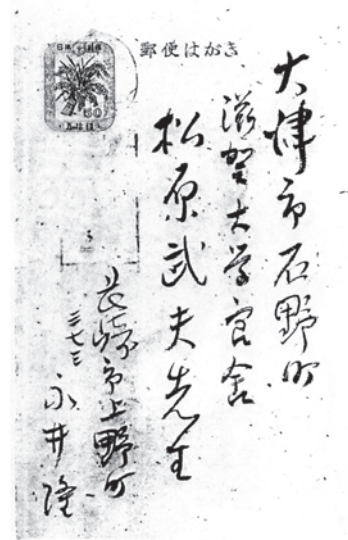 郵便はがき
大津市石野町
滋賀大学官舎
松原武夫先生
長崎市上野町
三七三
永井隆